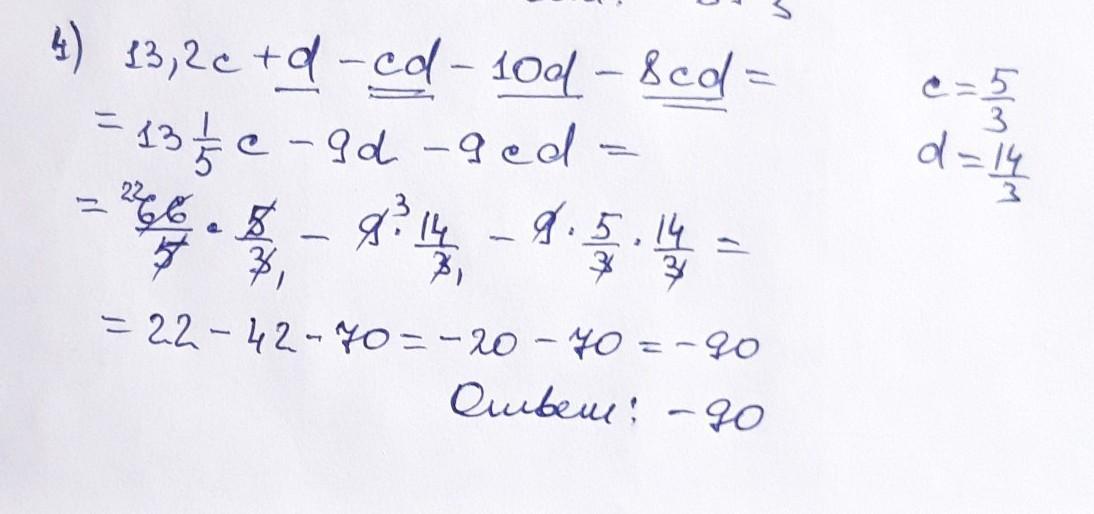 4) 13,2c + d - cd - 10d - 8cd =
c = 5/3
= 13 1/5 c - 9d - 9cd =
d = 14/3
= 22 66/5 · 5/3 1 - 9 3 · 14/3 1 - 9 · 5/3 · 14/3 =
= 22 - 42 - 70 = -20 - 70 = -90
Ответ: -90